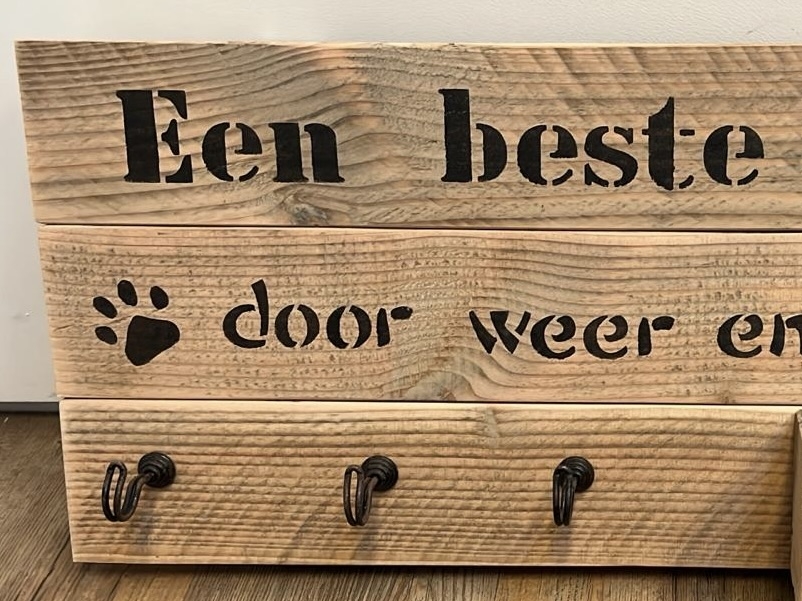 Een beste
door weer en